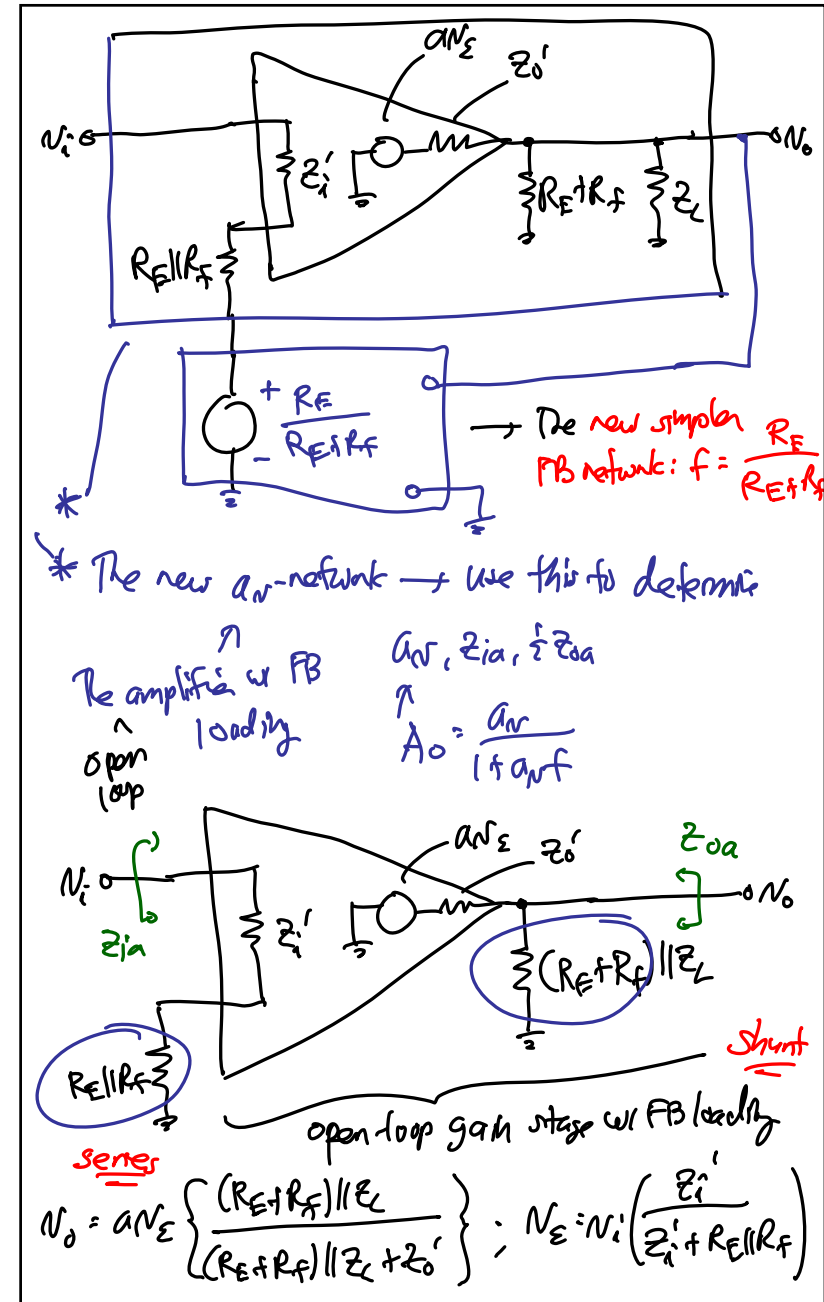 av_ε
Z_o'
v_i
v_o
Z_i'
R_E+R_f
Z_L
R_E||R_f
+ R_E/(R_E+R_f) -
→ The new simpler
FB network: f = R_E/(R_E+R_f)
*
* The new a_v-network → use this to determine
a_v, Z_ia, & Z_oa
The amplifier w/ FB
loading
open
loop
A_o = a_v/(1+a_v f)
av_ε
Z_o'
Z_oa
v_i
v_o
Z_ia
Z_i'
(R_E+R_f)||Z_L
R_E||R_f
shunt
open-loop gain stage w/ FB loading
series
v_o = av_ε { (R_E+R_f)||Z_L / ((R_E+R_f)||Z_L + Z_o') } ; v_ε = v_i (Z_i' / (Z_i' + R_E||R_f))